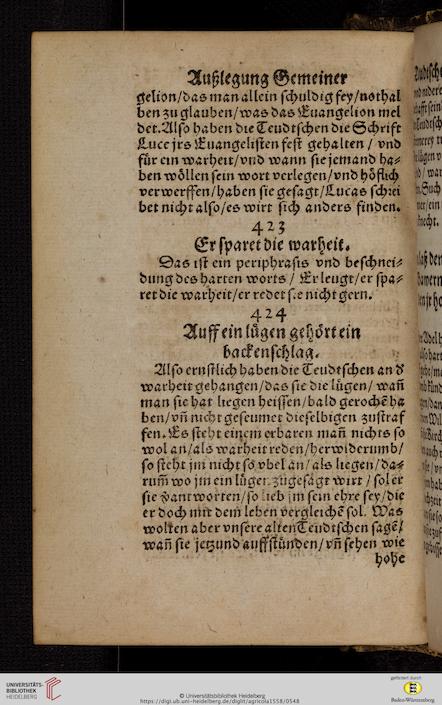 Außlegung Gemeiner
gelion/das man allein schuldig sey/nothal
ben zu glauben/was das Euangelion mel
det. Also haben die Teudtschen die Schrift
Luce jrs Euangelisten fest gehalten / vnd
für ein warheit/vnd wann sie jemand ha-
ben wöllen sein wort verlegen/vnd höflich
verwerffen/haben sie gesagt/Lucas schrei
bet nicht also/es wirt sich anders finden.
423
Er sparet die warheit.
Das ist ein periphrasis vnd beschnei-
dung des harten worts / Er leugt/er spa-
ret die warheit/er redet sie nicht gern.
424
Auff ein lügen gehört ein
backenschlag.
Also ernstlich haben die Teudtschen an ð
warheit gehangen/das sie die lügen/ wañ
man sie hat liegen heissen/bald gerochē ha
ben/vñ nicht geseumet dieselbigen zustraf
fen. Es steht einem erbaren mañ nichts so
wol an/als warheit reden/herwiderumb/
so steht jm nicht so vbel an/als liegen/da-
rum̃ wo jm ein lügen zugesagt wirt / sol er
sie v̄antworten/so lieb jm sein ehre sey/die
er doch mit dem leben vergleichē sol. Was
wolten aber vnsere alten Teudtschen sagē/
wañ sie jetzund auffstünden/vñ sehen wie
hohe
UNIVERSITÄTS-
BIBLIOTHEK
HEIDELBERG
© Universitätsbibliothek Heidelberg
https://digi.ub.uni-heidelberg.de/diglit/agricola1558/0548
gefördert durch
Baden-Württemberg